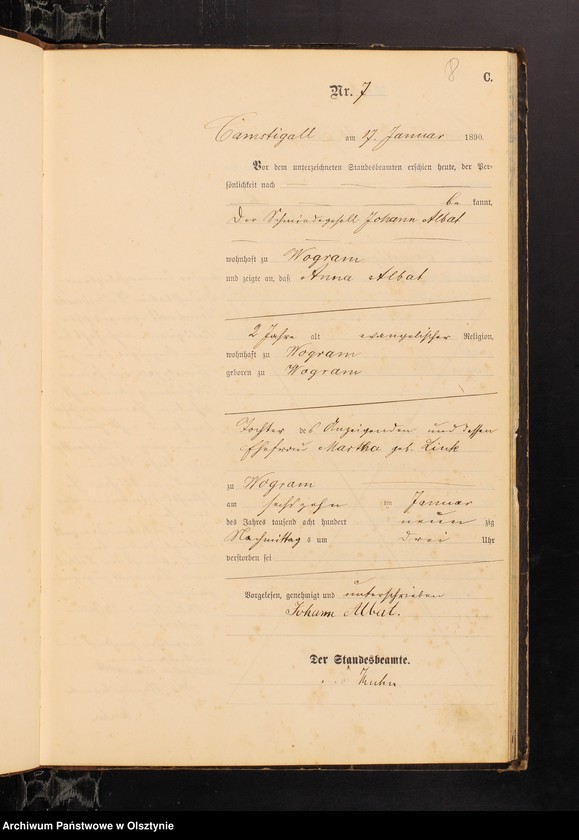 8 C.
Nr. 7
Camstigall am 17. Januar 1890.
Vor dem unterzeichneten Standesbeamten erschien heute, der Per-
sönlichkeit nach
be kannt,
der Schmiedegesell Johann Albat
wohnhaft zu Wogram
und zeigte an, daß Anna Albat
2 Jahre alt evangelischer Religion,
wohnhaft zu Wogram
geboren zu Wogram
Tochter des Anzeigenden und dessen
Ehefrau Martha geb. Link
zu Wogram
am sechszehn ten Januar
des Jahres tausend acht hundert neun zig
Nachmittag s um drei Uhr
verstorben sei
Vorgelesen, genehmigt und unterschrieben
Johann Albat.
Der Standesbeamte.
Kuhn
Archiwum Państwowe w Olsztynie